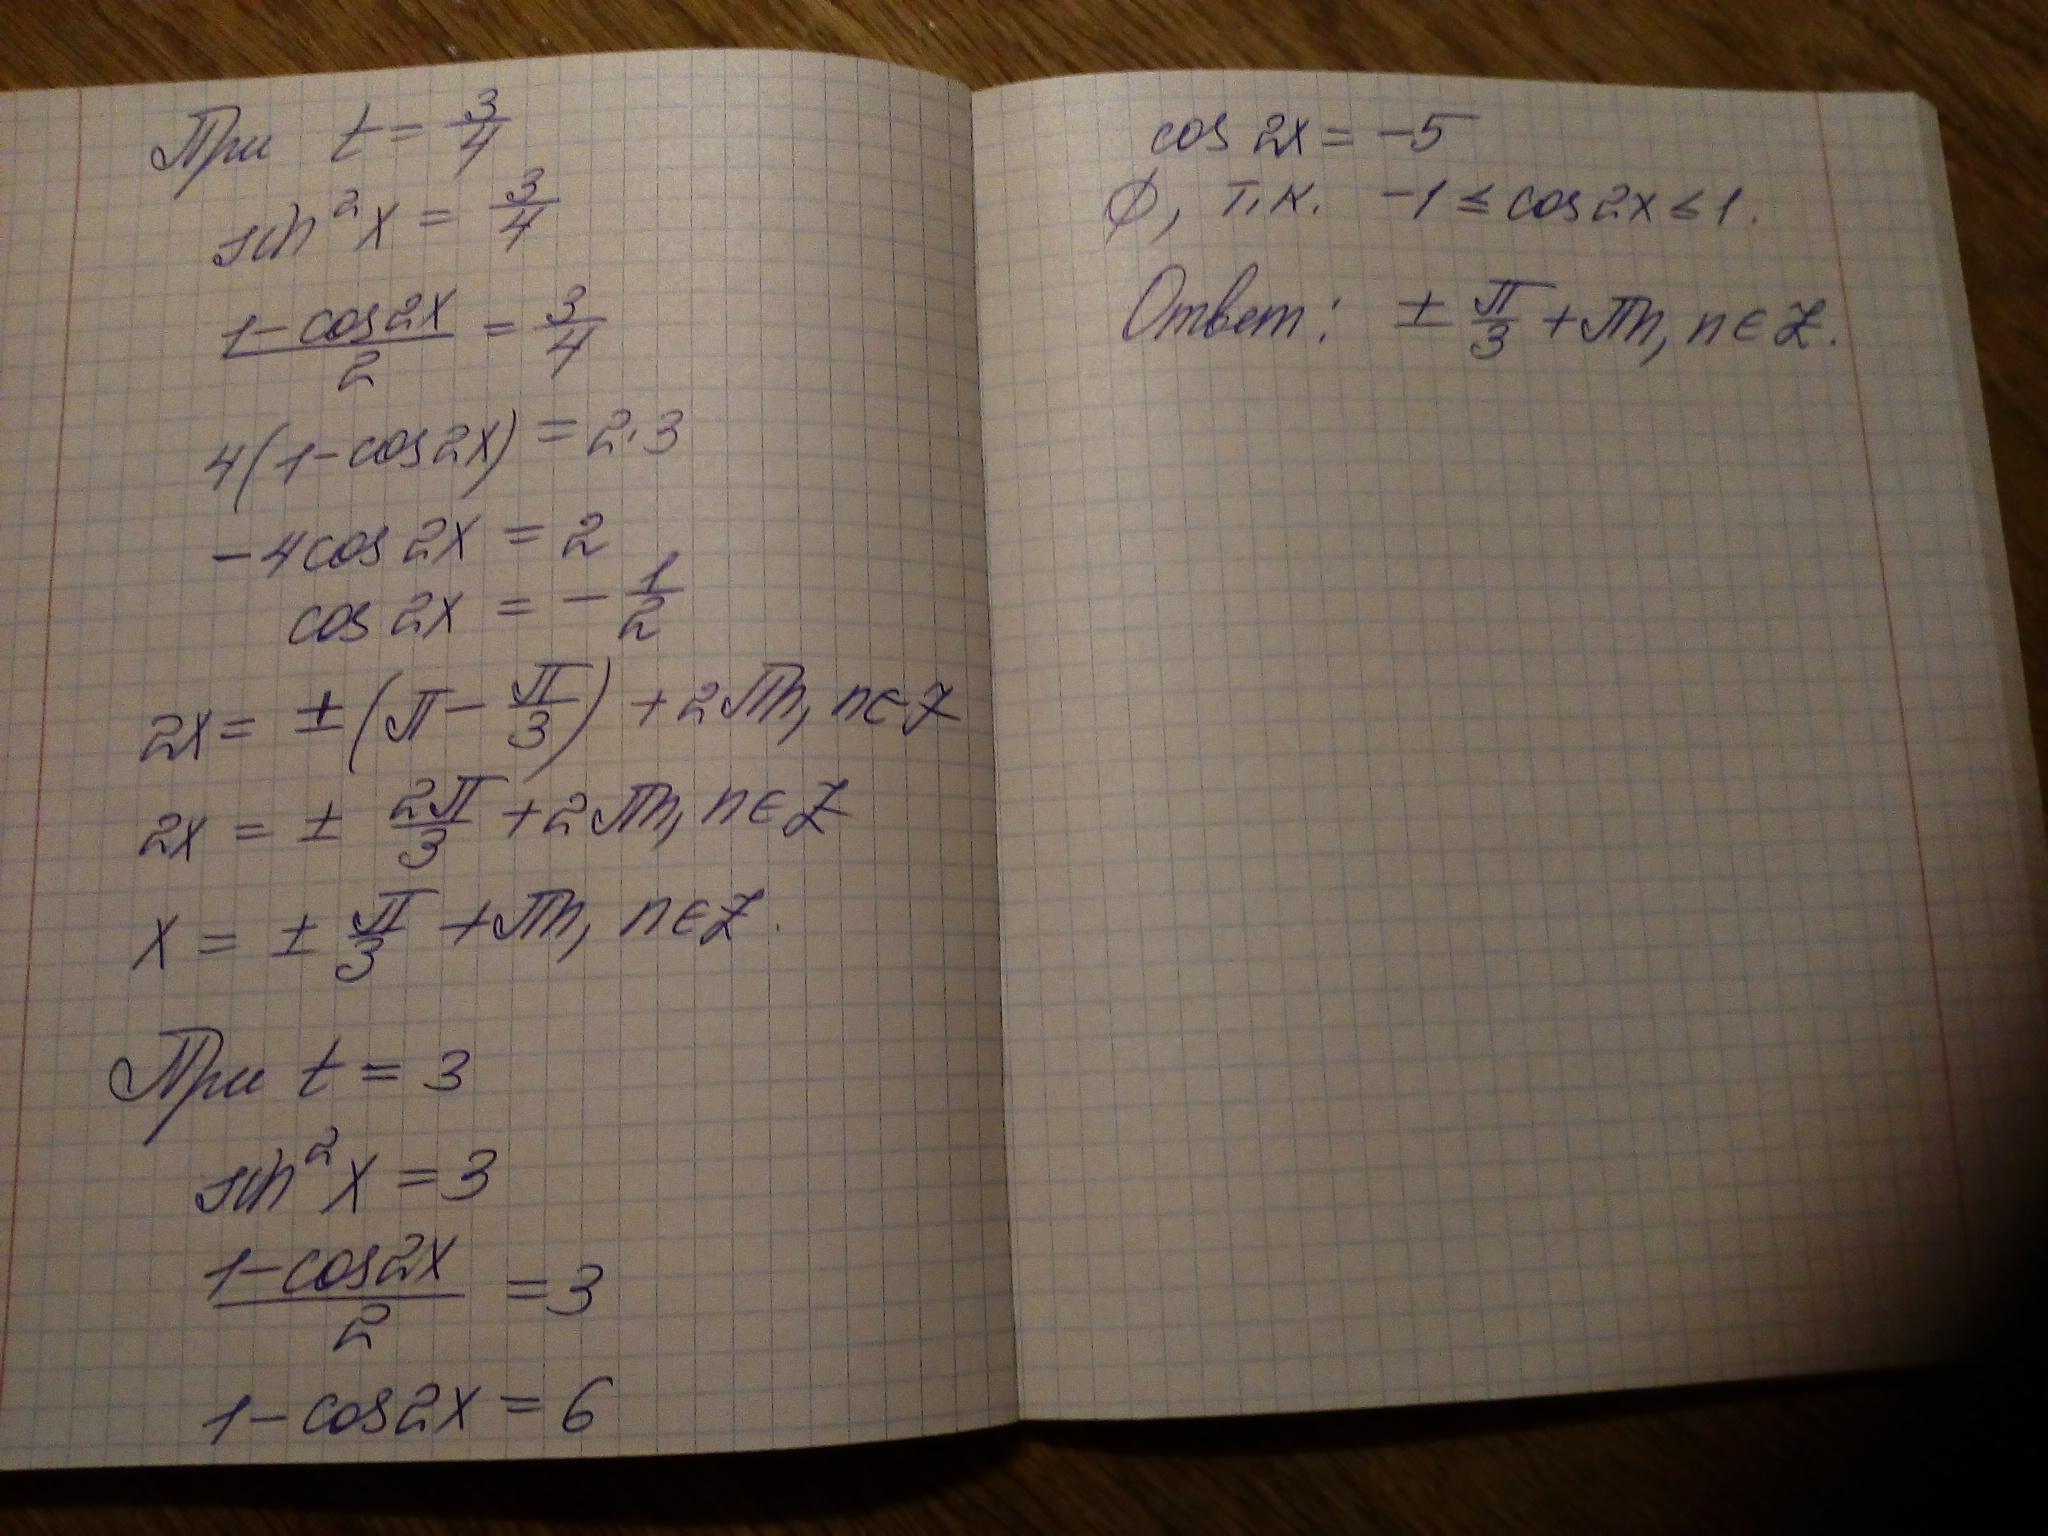 При t = 3/4
sin²x = 3/4
(1-cos2x)/2 = 3/4
4(1-cos2x) = 2·3
-4cos2x = 2
cos2x = -1/2
2x = ±(π - π/3) + 2πn, n∈Z
2x = ± 2π/3 + 2πn, n∈Z
x = ± π/3 + πn, n∈Z.
При t = 3
sin²x = 3
(1-cos2x)/2 = 3
1-cos2x = 6
cos2x = -5
∅, т.к. -1 ≤ cos2x ≤ 1.
Ответ: ± π/3 + πn, n∈Z.